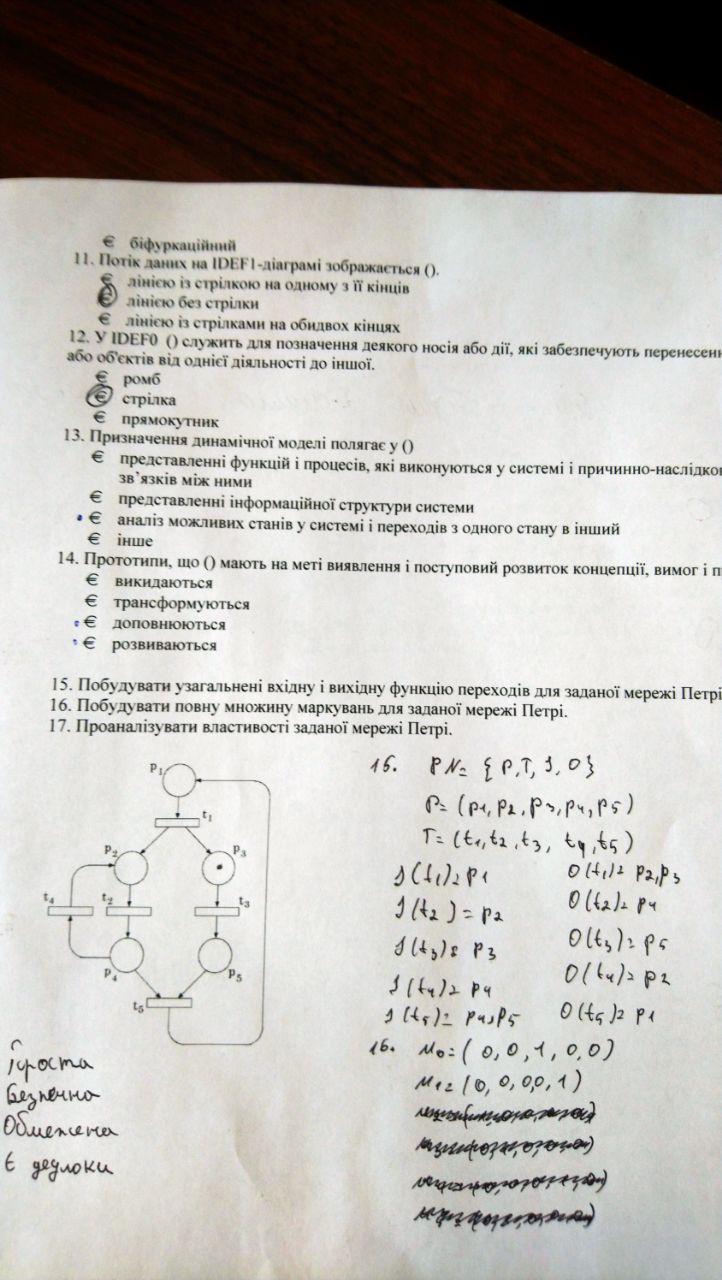 € біфуркаційний
11. Потік даних на IDEF1-діаграмі зображається ().
€ лінією із стрілкою на одному з її кінців
€ лінією без стрілки
€ лінією із стрілками на обидвох кінцях
12. У IDEF0 () служить для позначення деякого носія або дії, які забезпечують перенесенн
або об'єктів від однієї діяльності до іншої.
€ ромб
€ стрілка
€ прямокутник
13. Призначення динамічної моделі полягає у ()
€ представленні функцій і процесів, які виконуються у системі і причинно-наслідков
зв’язків між ними
€ представленні інформаційної структури системи
€ аналіз можливих станів у системі і переходів з одного стану в інший
€ інше
14. Прототипи, що () мають на меті виявлення і поступовий розвиток концепції, вимог і п
€ викидаються
€ трансформуються
€ доповнюються
€ розвиваються
15. Побудувати узагальнені вхідну і вихідну функцію переходів для заданої мережі Петрі
16. Побудувати повну множину маркувань для заданої мережі Петрі.
17. Проаналізувати властивості заданої мережі Петрі.
p1
t1
p2
p3
t4
t2
t3
p4
p5
t5
15. PN = {P, T, I, O}
P = (p1, p2, p3, p4, p5)
T = (t1, t2, t3, t4, t5)
I(t1) = p1 O(t1) = p2, p3
I(t2) = p2 O(t2) = p4
I(t3) = p3 O(t3) = p5
I(t4) = p4 O(t4) = p2
I(t5) = p4, p5 O(t5) = p1
16. M0 = (0, 0, 1, 0, 0)
M1 = (0, 0, 0, 0, 1)
Проста
Безпечна
Обмежена
Є дедлоки